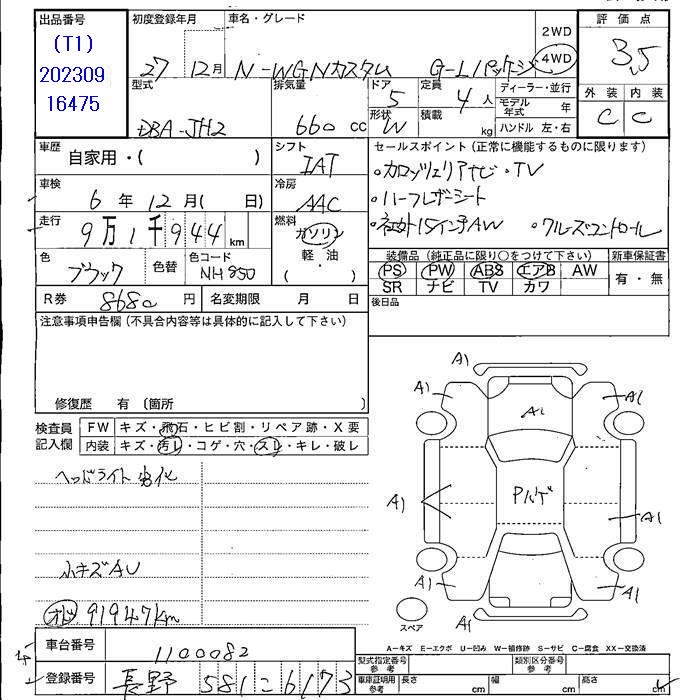 出品番号
(T1)
202309
16475
初度登録年月
27 12月
車名・グレード
N-WGNカスタム G-Lパッケージ
2WD
4WD
評価点
3.5
外装 内装
C C
型式
DBA-JH2
排気量
660 cc
ドア
5
形状
W
定員
4 人
積載
kg
ディーラー・並行
モデル年式 年
ハンドル 左・右
車歴
自家用・( )
シフト
IAT
車検
6 年 12 月( 日)
冷房
AAC
走行
9万1千944 km
燃料
ガソリン
軽・油
( )
色
ブラック
色替
色コード
NH850
R券 8680 円 名変期限 月 日
セールスポイント (正常に機能するものに限ります)
・カロッツェリアナビ・TV
・ハーフレザーシート
・社外15インチAW ・クルーズコントロール
装備品 (純正品に限り○をつけて下さい)
PS PW ABS エアB AW
SR ナビ TV カワ
新車保証書
有・無
後日品
注意事項申告欄 (不具合内容等は具体的に記入して下さい)
修復歴 有 〔箇所 〕
検査員記入欄
FW キズ・飛石・ヒビ割・リペア跡・X要
内装 キズ・汚レ・コゲ・穴・スレ・キレ・破レ
ヘッドライト劣化
小キズAU
オド 91947km
A1
A1
A1
A1
Pハゲ
A1
A1
A1
A1
A1
スペア
A-キズ E-エクボ U-凹み W-補修跡 S-サビ C-腐食 XX-交換済
車台番号
1100082
登録番号
長野 581 こ 6173
型式指定番号 参考
類別区分番号 参考
車庫証明用 参考
長さ cm 幅 cm 高さ cm